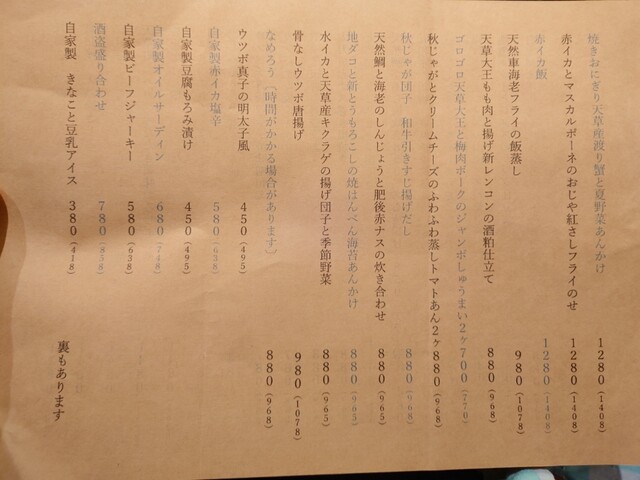 焼きおにぎり天草産渡り蟹と夏野菜あんかけ 1280(1408)
赤イカとマスカルポーネのおじや紅さしフライのせ 1280(1408)
赤イカ飯 1280(1408)
天然車海老フライの飯蒸し 980(1078)
天草大王もも肉と揚げ新レンコンの酒粕仕立て 880(968)
ゴロゴロ天草大王と梅肉ポークのジャンボしゅうまい2ヶ700(770)
秋じゃがとクリームチーズのふわふわ蒸しトマトあん2ヶ880(968)
秋じゃが団子 和牛引きすじ揚げだし 880(968)
天然鯛と海老のしんじょうと肥後赤ナスの炊き合わせ 880(965)
地ダコと新とうもろこしの焼はんぺん海苔あんかけ 880(965)
水イカと天草産キクラゲの揚げ団子と季節野菜 880(965)
骨なしウツボ唐揚げ 980(1078)
なめろう(時間がかかる場合があります) 880(968)
ウツボ真子の明太子風 450(495)
自家製赤イカ塩辛 580(638)
自家製豆腐もろみ漬け 450(495)
自家製オイルサーディン 680(748)
自家製ビーフジャーキー 580(638)
酒盗盛り合わせ 780(858)
自家製 きなこと豆乳アイス 380(418)
裏もあります